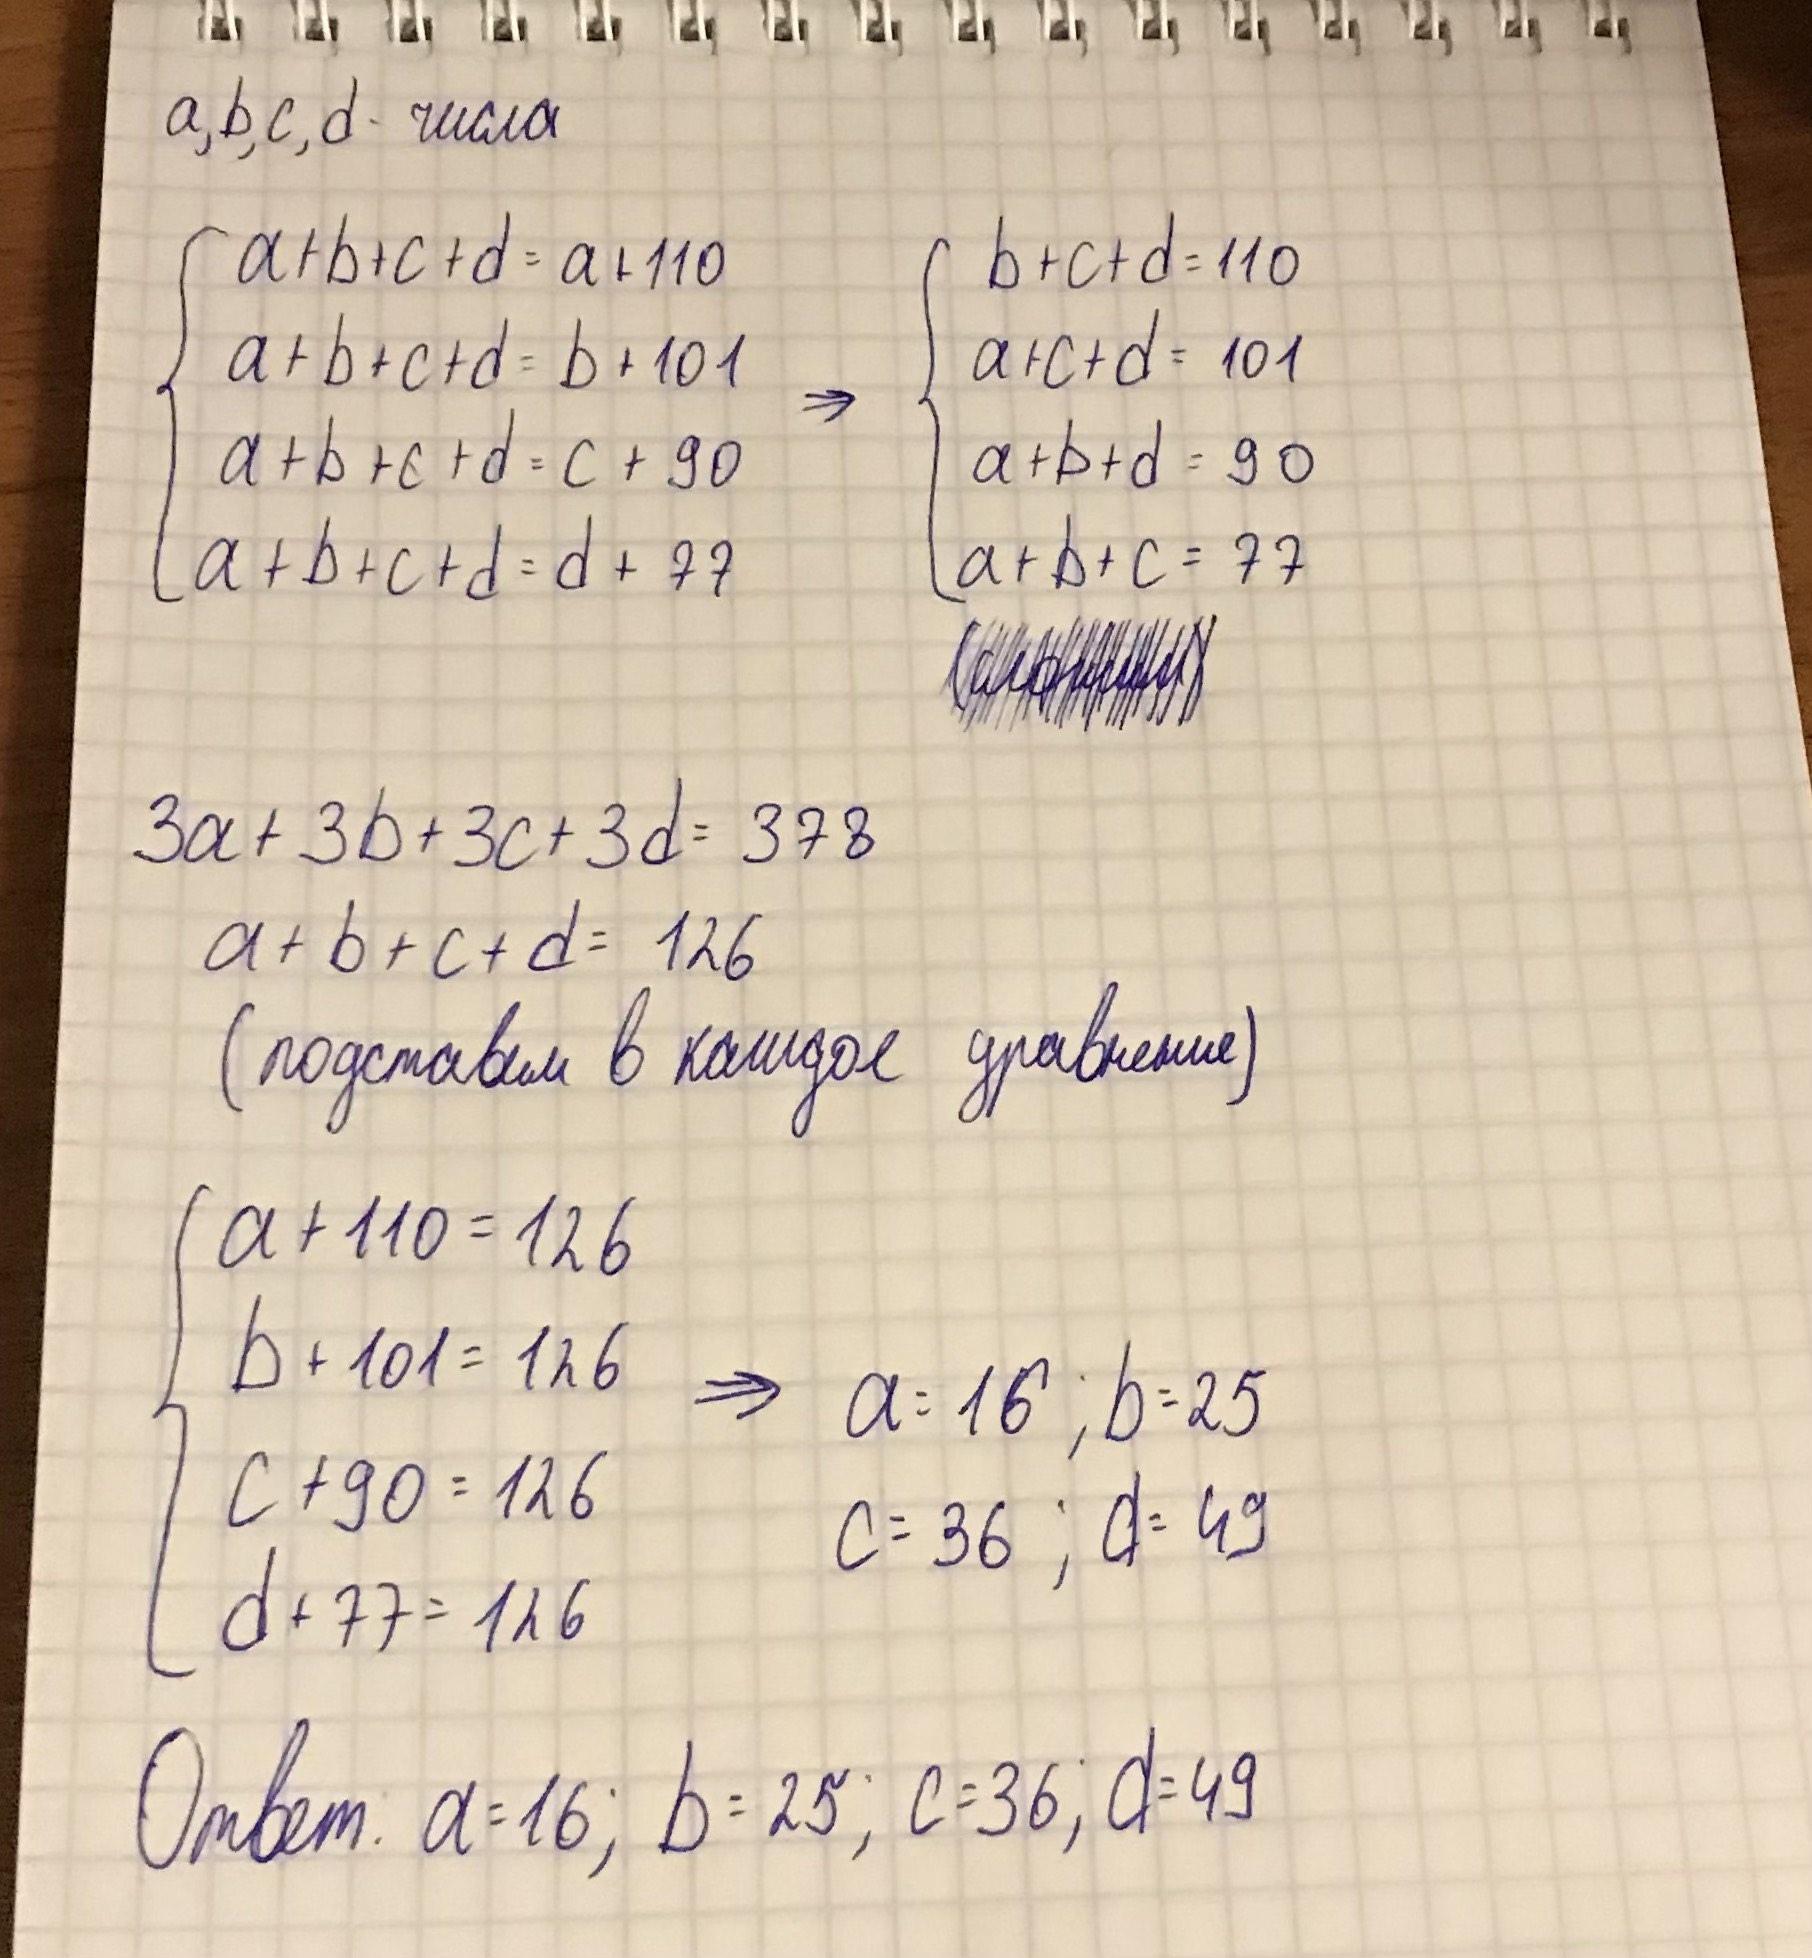 a,b,c,d - числа
a+b+c+d=a+110
a+b+c+d=b+101
a+b+c+d=c+90
a+b+c+d=d+77
⇒
b+c+d=110
a+c+d=101
a+b+d=90
a+b+c=77
3a+3b+3c+3d=378
a+b+c+d=126
(подставим в каждое уравнение)
a+110=126
b+101=126
c+90=126
d+77=126
⇒ a=16; b=25
c=36; d=49
Ответ: a=16; b=25; c=36; d=49